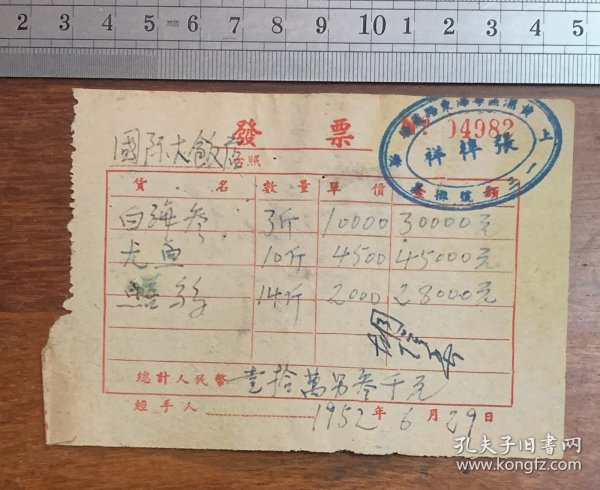 2 3 4 5 6 7 8 9 10 1 2 3 4 5
發 票
№ 04982
張祥祥
國际大飯店
台照
貨 名 數量 單價
白海參 3斤 10000 30000元
尤鱼 10斤 4500 45000元
14斤 2000 28000元
總計人民幣 壹拾萬另叁千元
經手人
1952年6月29日
孔夫子旧书网
www.kongfz.com